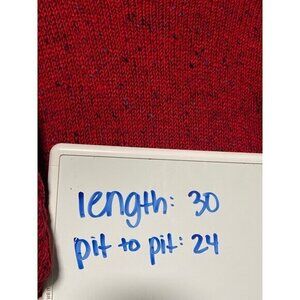 length: 30
pit to pit: 24